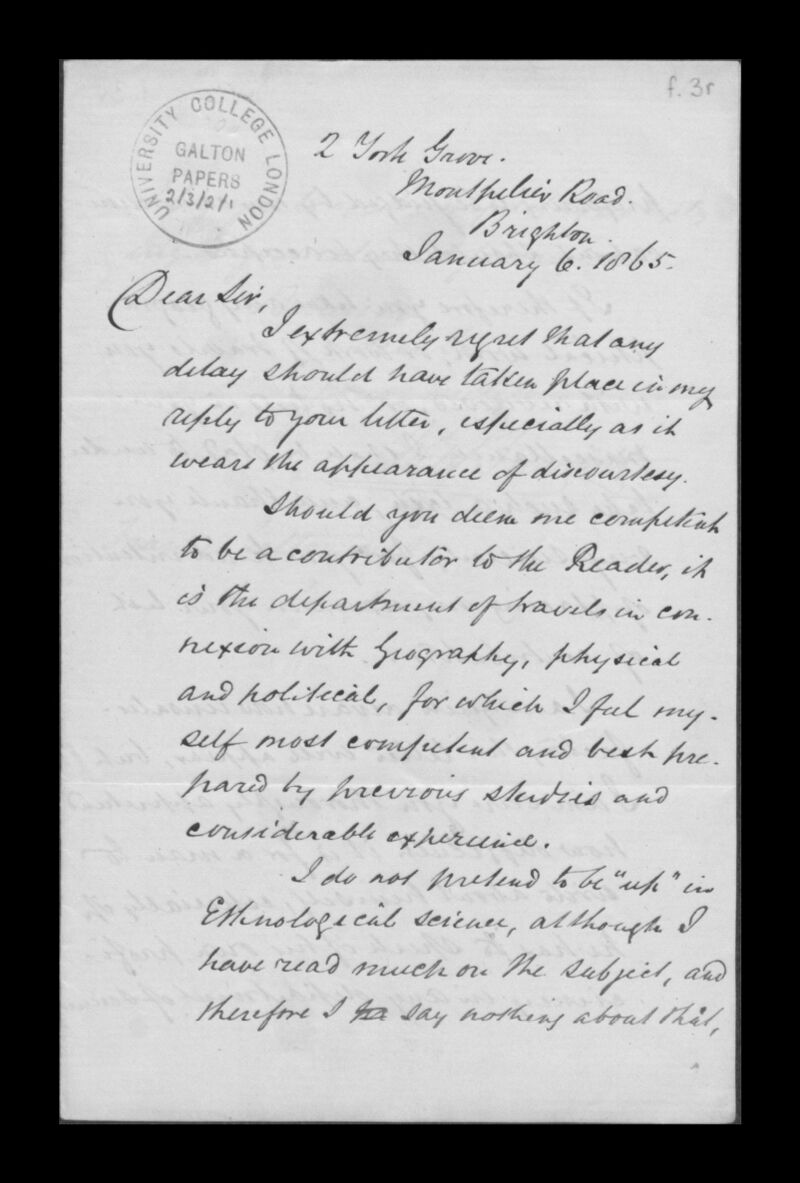 f. 3r
UNIVERSITY COLLEGE LONDON
GALTON
PAPERS
2/3/2/1
2 York Grove.
Montpelier Road.
Brighton.
January 6. 1865.
Dear Sir,
I extremely regret that any
delay should have taken place in my
reply to your letter, especially as it
wears the appearance of discourtesy.
Should you deem me competent
to be a contributor to the Reader, it
is the department of travels in con-
nexion with Geography, physical
and political, for which I feel my-
self most competent and best pre-
pared by previous studies and
considerable experience.
I do not pretend to be "up" in
Ethnological science, although I
have read much on the subject, and
therefore I say nothing about that,